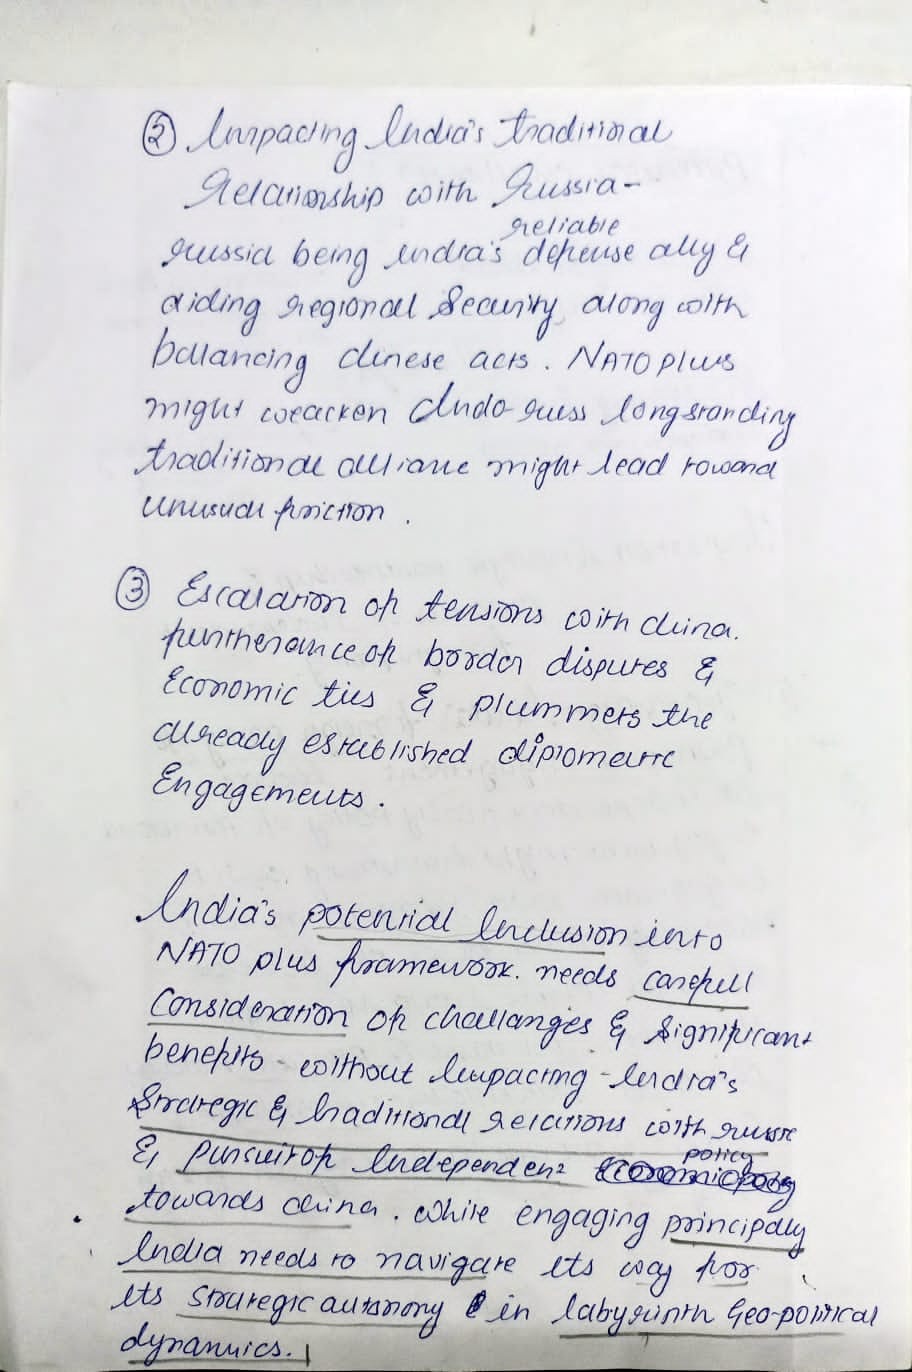 ② Impacting India's traditional
Relationship with Russia-
reliable
russia being india's defense ally &
aiding regional Security, along with
ballancing chinese acts. NATO plus
might weacken Indo-russ longstanding
traditional alliance might lead toward
unusual friction.
③ Escalation of tensions with china.
furtherance of border disputes &
Economic ties & plummets the
already established diplomatic
Engagements.
India's potential Inclusion into
NATO plus framework. needs carefull
Consideration of challanges & significant
benefits - without Impacting - India's
Strategic & traditional relations with russia
& pursuit of Independent policy
towards china. While engaging principally
India needs to navigate its way for
its strategic autonomy in labyrinth Geo-political
dynamics.